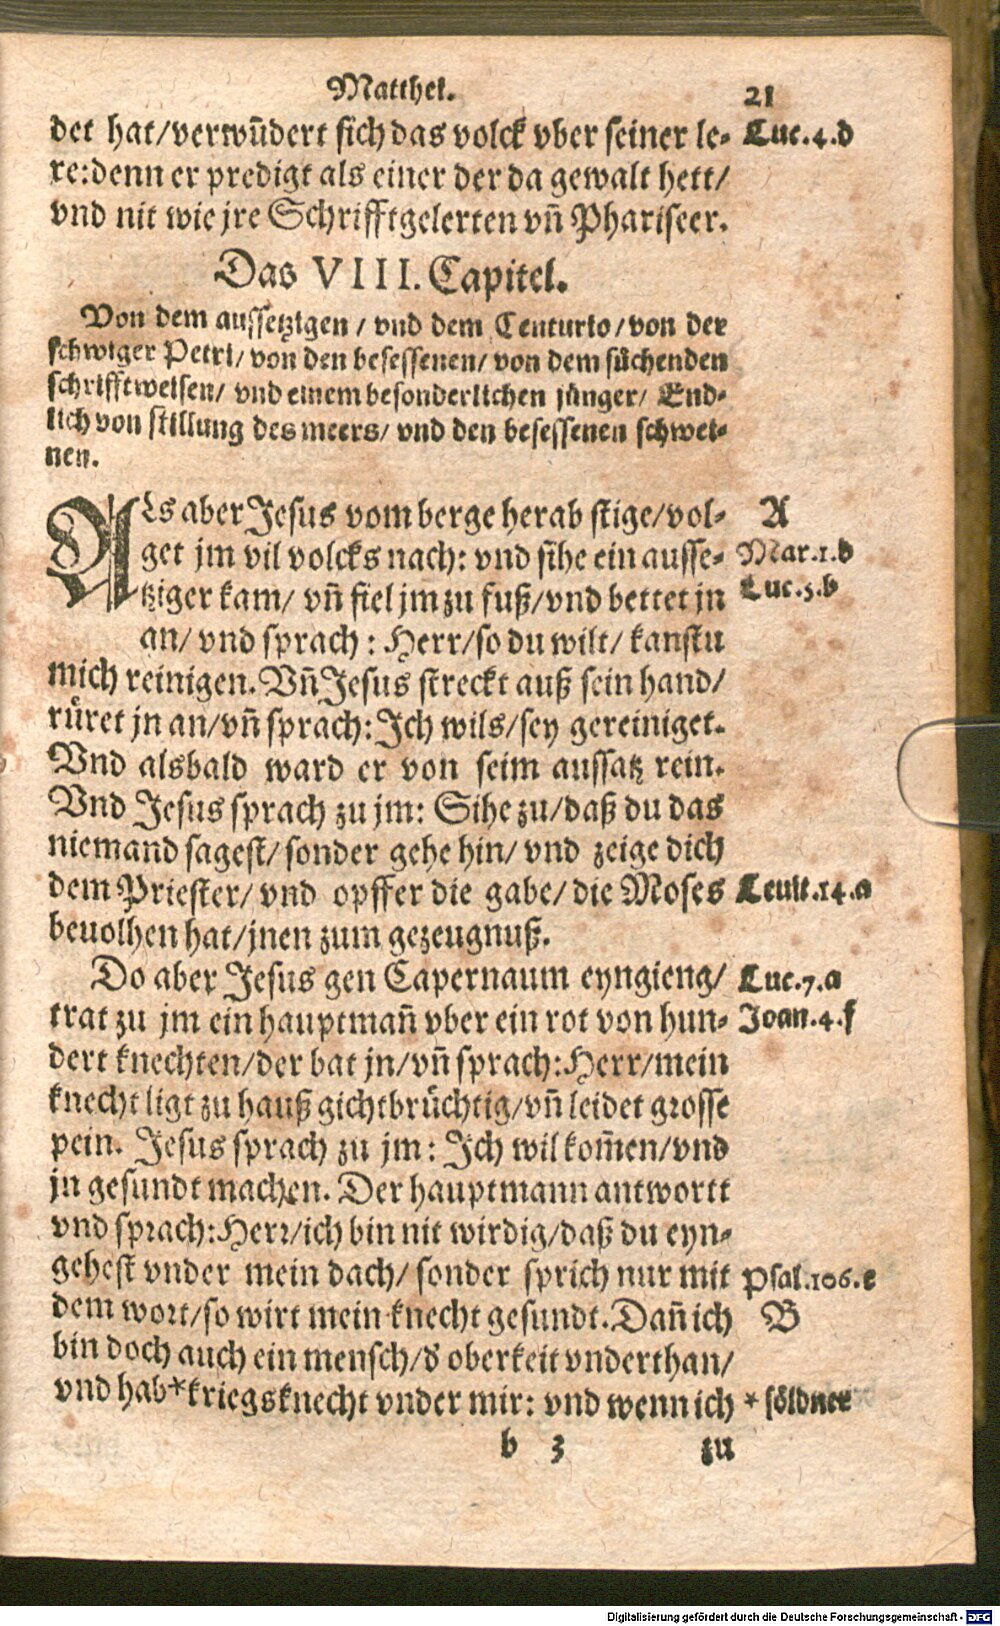 Matthei.
21
det hat/verwūdert sich das volck vber seiner le- Luc.4.d
re:denn er predigt als einer der da gewalt hett/
vnd nit wie jre Schrifftgelerten vn̄ Phariseer.
Das VIII. Capitel.
Von dem aussetzigen / vnd dem Centurio/von der
schwiger Petri/ von den besessenen/ von dem sůchenden
schrifftweisen/ vnd einem besonderlichen jünger/ End-
lich von stillung des meers/ vnd den besessenen schwei-
nen.
ALs aber Jesus vom berge herab stige/vol- A
get jm vil volcks nach: vnd sihe ein ausse- Mar.1.d
tziger kam/ vn̄ fiel jm zu fuß/vnd bettet jn Luc.5.b
an/ vnd sprach : Herr/so du wilt/ kanstu
mich reinigen. Vn̄ Jesus streckt auß sein hand/
rüret jn an/vn̄ sprach: Ich wils/sey gereiniget.
Vnd alsbald ward er von seim aussatz rein.
Vnd Jesus sprach zu jm: Sihe zu/daß du das
niemand sagest/ sonder gehe hin/ vnd zeige dich
dem Priester/ vnd opffer die gabe/ die Moses Leuit.14.a
beuolhen hat/jnen zum gezeugnuß.
Do aber Jesus gen Capernaum eyngieng/ Luc.7.a
trat zu jm ein hauptman̄ vber ein rot von hun- Joan.4.f
dert knechten/der bat jn/vn̄ sprach:Herr/mein
knecht ligt zu hauß gichtbrüchtig/vn̄ leidet grosse
pein. Jesus sprach zu jm: Ich wil kom̄en/vnd
jn gesundt machen. Der hauptmann antwortt
vnd sprach:Herr/ich bin nit wirdig/daß du eyn-
gehest vnder mein dach/ sonder sprich nur mit Psal.106.c
dem wort/so wirt mein knecht gesundt. Dan̄ ich B
bin doch auch ein mensch/d̄ oberkeit vnderthan/
vnd hab*kriegsknecht vnder mir: vnd wenn ich * söldner
b 3 zu
Digitalisierung gefördert durch die Deutsche Forschungsgemeinschaft - DFG